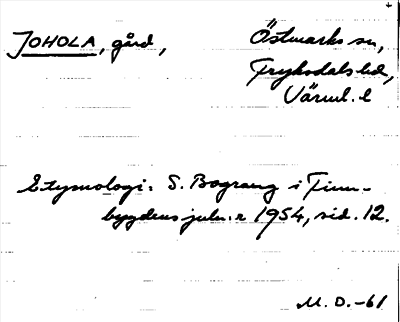 JOHOLA, gård, Östmarks sn,
Fryksdals hd,
Värml. l
Etymologi: S. Bograng i Finn-
bygdens julnr 1954, sid. 12.
M. D. -61